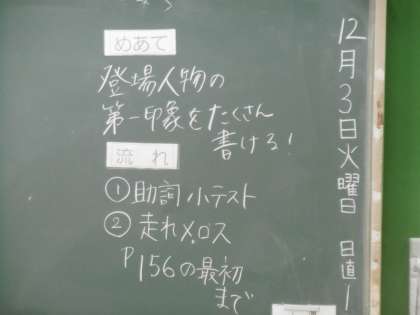 12月3日火曜日 日直
めあて
登場人物の
第一印象をたくさん
書ける!
流れ
①助詞小テスト
②走れメロス
P156の最初
まで